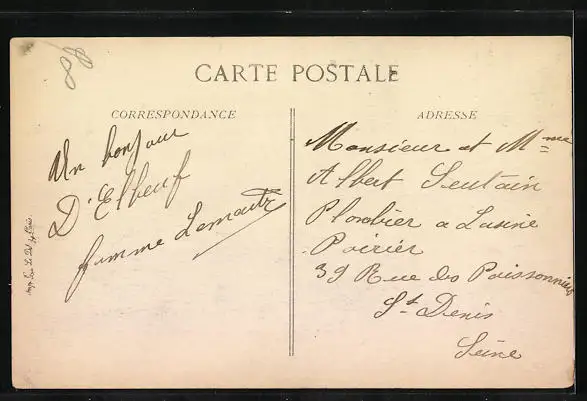 CARTE POSTALE
CORRESPONDANCE
Un bonjour
D'Elbeuf
femme Lemaitre
ADRESSE
Monsieur et Mme
Albert Sentain
Plombier a Lusine
Poirier
39 Rue des Poissonniers
St Denis
Seine